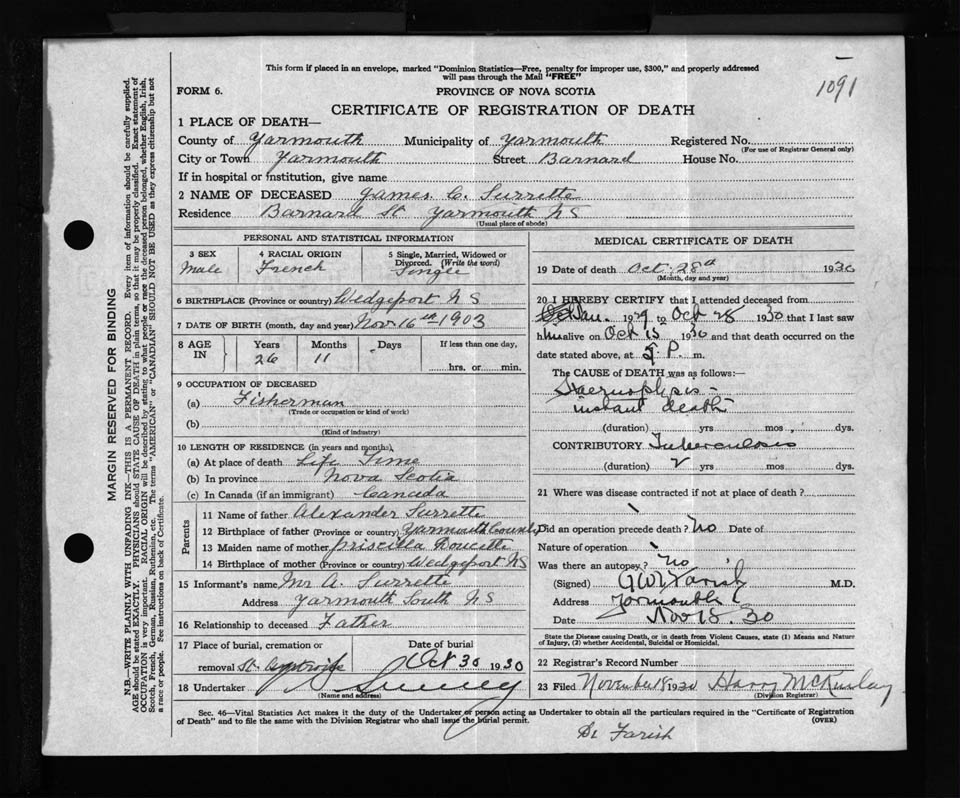 1091
This form if placed in an envelope, marked "Dominion Statistics—Free, penalty for improper use, $300," and properly addressed
will pass through the Mail "FREE"
FORM 6.
PROVINCE OF NOVA SCOTIA
CERTIFICATE OF REGISTRATION OF DEATH
1 PLACE OF DEATH—
County of Yarmouth Municipality of Yarmouth Registered No.
(For use of Registrar General only)
City or Town Yarmouth Street Barnard House No.
If in hospital or institution, give name
2 NAME OF DECEASED James C. Surrette
Residence Barnard St Yarmouth NS
(Usual place of abode)
PERSONAL AND STATISTICAL INFORMATION
3 SEX Male
4 RACIAL ORIGIN French
5 Single, Married, Widowed or Divorced. (Write the word) Single
6 BIRTHPLACE (Province or country) Wedgeport NS
7 DATE OF BIRTH (month, day and year) Nov 16th 1903
8 AGE IN Years 26 Months 11 Days If less than one day, hrs. or min.
9 OCCUPATION OF DECEASED
(a) Fisherman
(Trade or occupation or kind of work)
(b)
(Kind of industry)
10 LENGTH OF RESIDENCE (in years and months)
(a) At place of death Life Time
(b) In province Nova Scotia
(c) In Canada (if an immigrant) Canada
Parents
11 Name of father Alexander Surrette
12 Birthplace of father (Province or country) Yarmouth County
13 Maiden name of mother Priscilla Doucette
14 Birthplace of mother (Province or country) Wedgeport NS
15 Informant's name Mr A. Surrette
Address Yarmouth South NS
16 Relationship to deceased Father
17 Place of burial, cremation or removal St. Date of burial Oct 30 1930
18 Undertaker Sweeny
(Name and address)
MEDICAL CERTIFICATE OF DEATH
19 Date of death Oct 28th 1930
(Month, day and year)
20 I HEREBY CERTIFY that I attended deceased from
Jan. 1929 to Oct 28 1930 that I last saw
him alive on Oct 15 1930 and that death occurred on the
date stated above, at P. m.
The CAUSE of DEATH was as follows:
Haemophysis -
instant death
(duration) yrs mos. dys.
CONTRIBUTORY Tuberculosis
(duration) 2 yrs mos dys.
21 Where was disease contracted if not at place of death?
Did an operation precede death? No Date of
Nature of operation
Was there an autopsy? No
(Signed) G W T Farish M.D.
Address Yarmouth
Date Nov 18. 30
State the Disease causing Death, or in death from Violent Causes, state (1) Means and Nature
of Injury, (2) whether Accidental, Suicidal or Homicidal.
22 Registrar's Record Number
23 Filed November 18 1930 Harry McKinlay
(Division Registrar)
Sec. 46—Vital Statistics Act makes it the duty of the Undertaker or person acting as Undertaker to obtain all the particulars required in the "Certificate of Registration
of Death" and to file the same with the Division Registrar who shall issue the burial permit.
(OVER)
Dr Farish
MARGIN RESERVED FOR BINDING
N.B.—WRITE PLAINLY WITH UNFADING INK—THIS IS A PERMANENT RECORD. Every item of information should be carefully supplied.
AGE should be stated EXACTLY. PHYSICIANS should STATE CAUSE OF DEATH in plain terms, so that it may be properly classified. Exact statement of
OCCUPATION is very important. RACIAL ORIGIN will be described by stating to what people or race the deceased person belonged, whether English, Irish,
Scotch, French, German, Russian, Ruthenian, etc. The terms "AMERICAN" or "CANADIAN" SHOULD NOT BE USED as they express citizenship but not
a race or people. See instructions on back of Certificate.